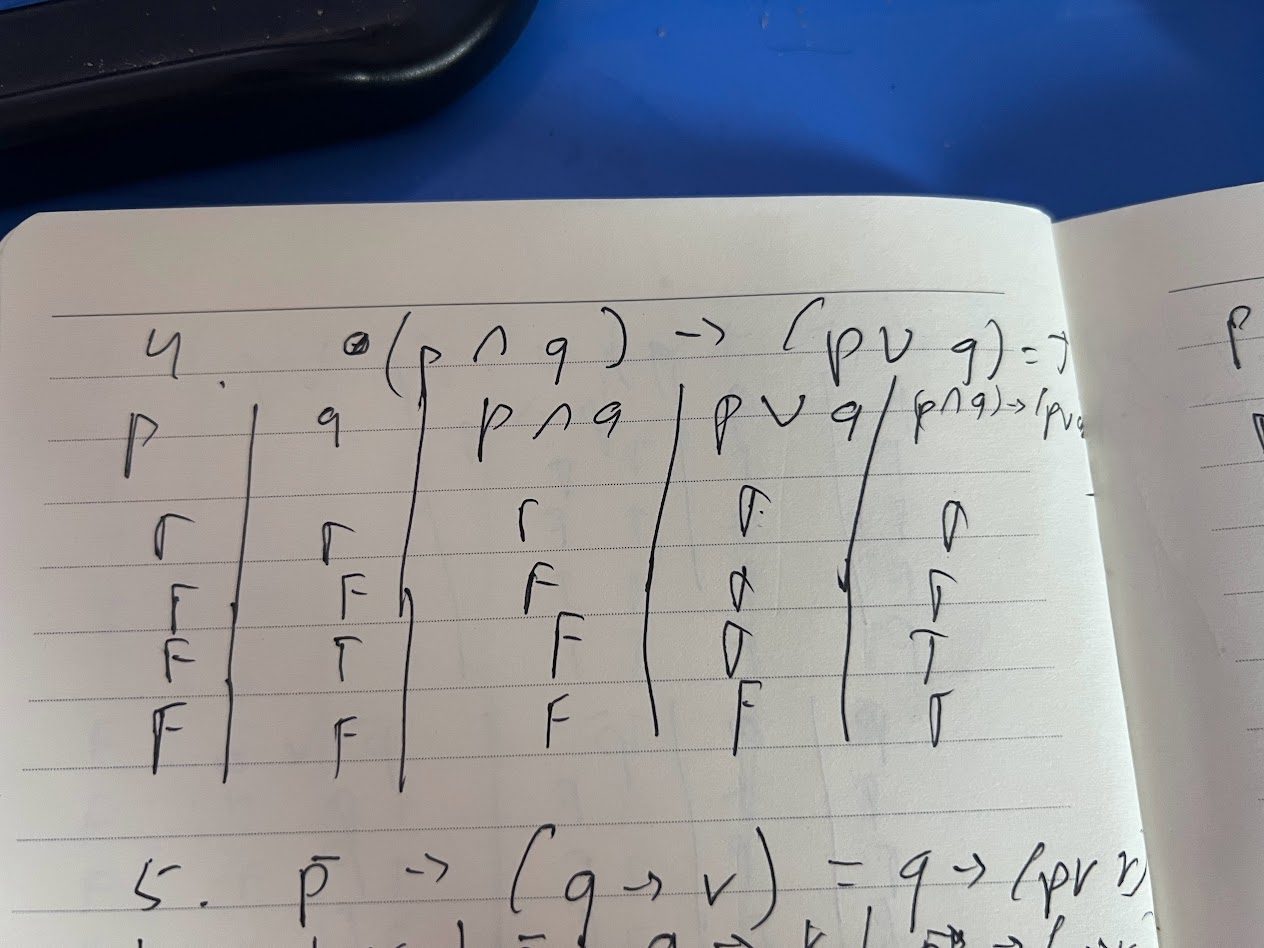 4. (p ∧ q) -> (p ∨ q) = T
p | q | p ∧ q | p ∨ q | (p ∧ q) -> (p ∨ q
T | T | T | T | T
T | F | F | T | T
F | T | F | T | T
F | F | F | F | T
5. p̄ -> (q -> r) = q -> (p ∨ r)